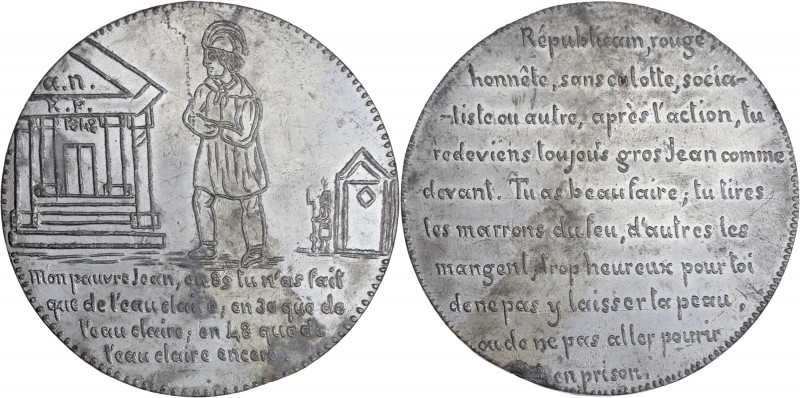 a.n.
R.F.
1848
Mon pauvre Jean, en 89 tu n'as fait
que de l'eau claire, en 30 que de
l'eau claire, en 48 que de
l'eau claire encore.
Républicain, rouge,
honnête, sans culotte, socia-
-liste ou autre, après l'action, tu
redeviens toujous gros Jean comme
devant. Tu as beau faire, tu tires
les marrons du feu, d'autres les
mangent, trop heureux pour toi
de ne pas y laisser ta peau,
ou de ne pas aller pourrir
en prison.